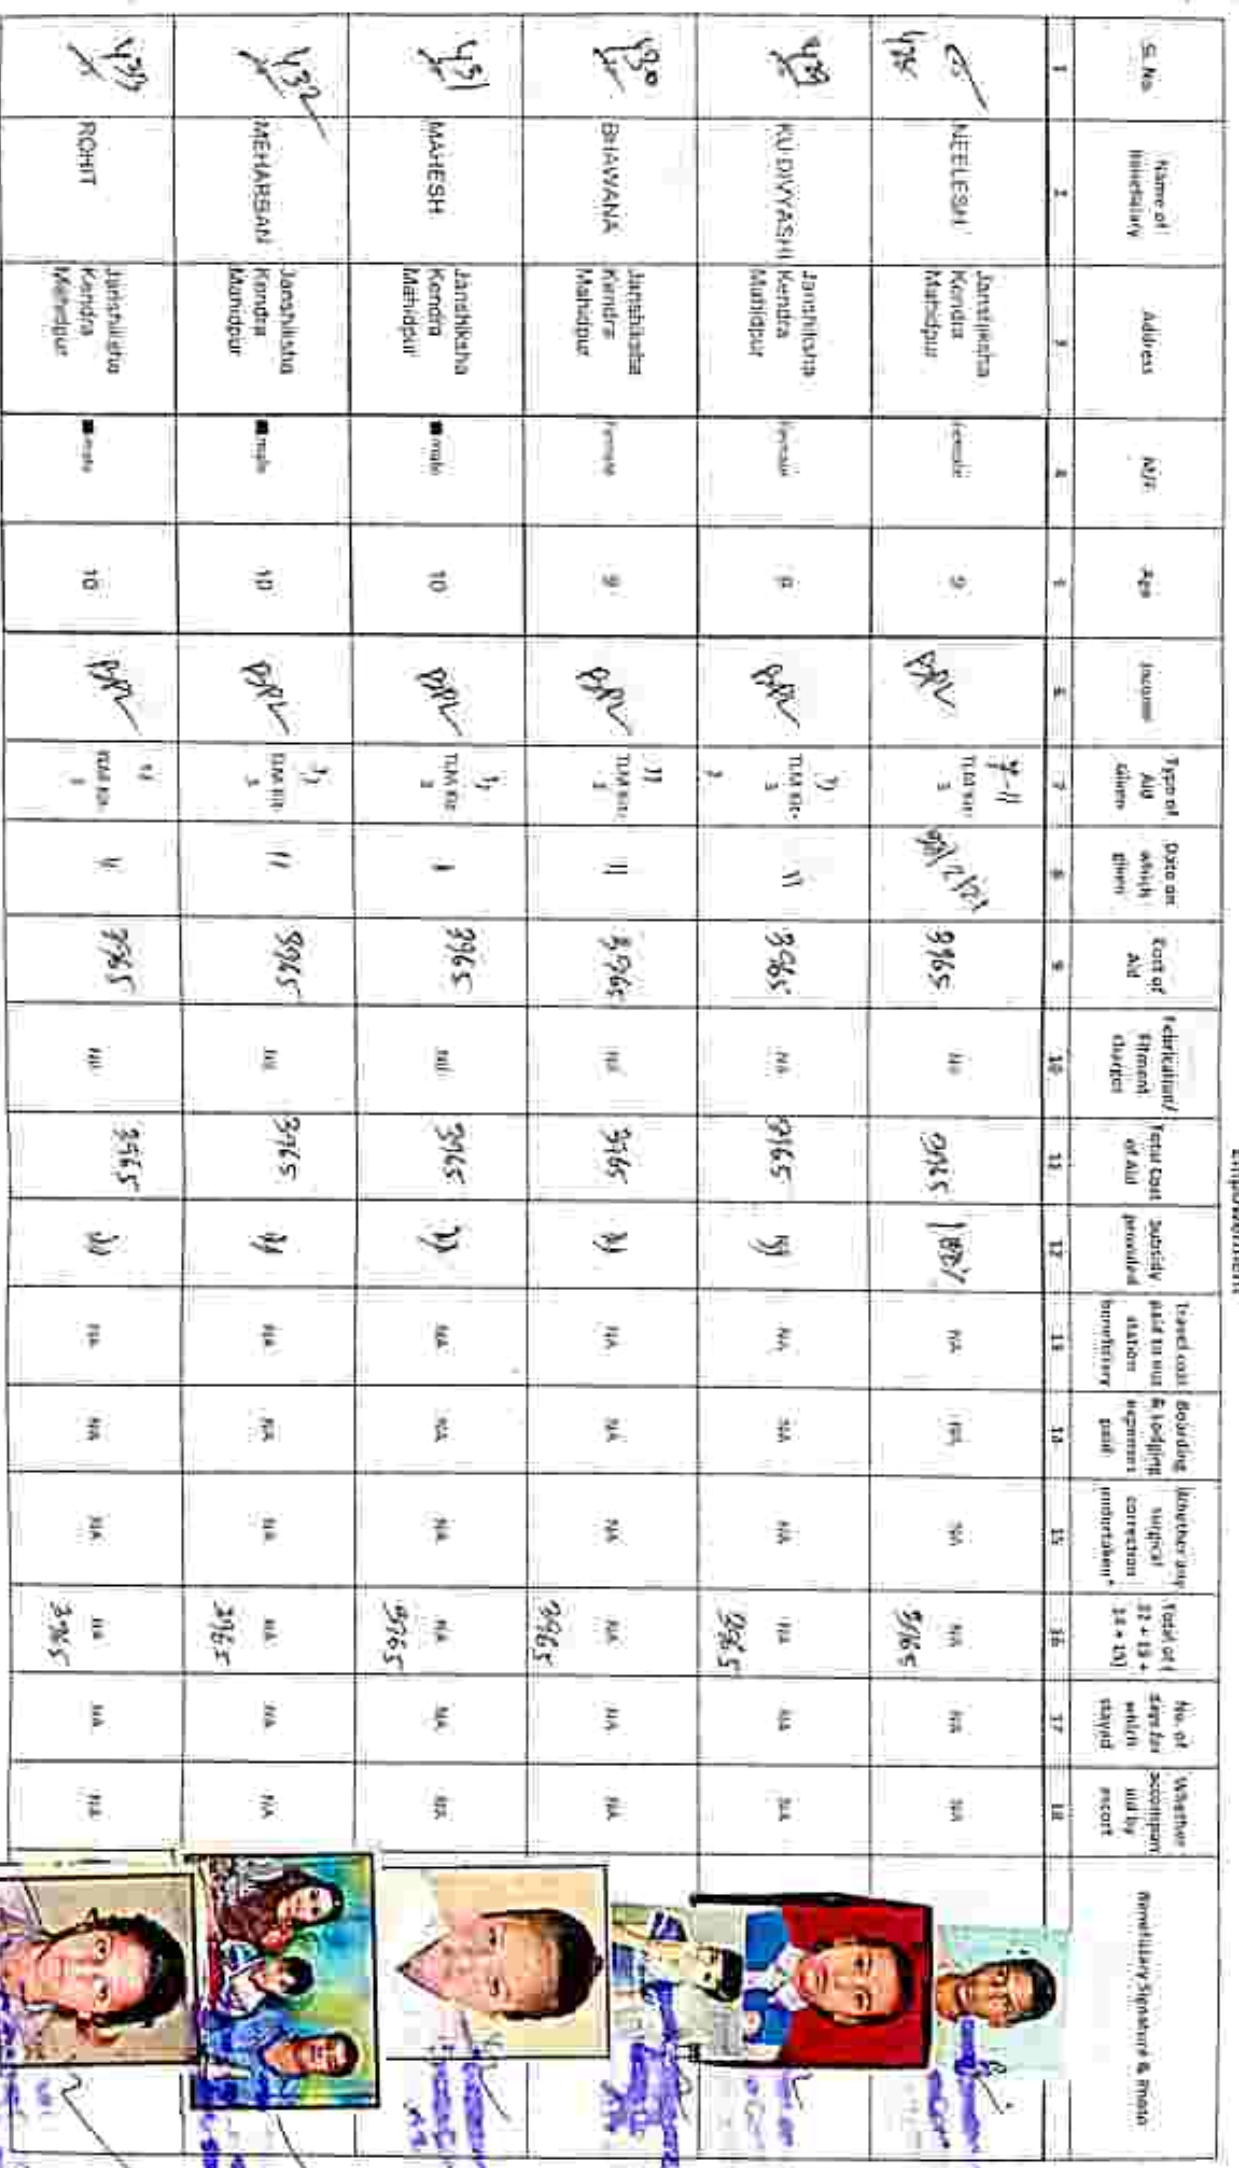 Empowerment
Sl. No. Name of Beneficiary Address M/F Age Income Type of Aid Given Date on which given Cost of Aid Fabrication/ Fitment charges Total Cost of Aid Subsidy provided Travel cost paid to out station beneficiary Boarding & lodging expenses paid Whether any surgical correction undertaken* Total of ( 12 + 13 + 14 + 15) No. of days for which stayed Whether accompan ied by escort Beneficiary Signature & Photo
1 2 3 4 5 6 7 8 9 10 11 12 13 14 15 16 17 18
NEELESH Janshiksha Kendra Mahidpur Female 9 BPL TLM Kit- 3 3965 Nil 3965 NA NA NA NA 3965 NA NA
429 KU DIVYASHI Janshiksha Kendra Mahidpur Female 9 BPL TLM Kit- 3 11 3965 NA 3965 11 NA NA NA NA 3965 NA NA
430 BHAWANA Janshiksha Kendra Mahidpur Female 9 BPL 11 TLM Kit- 3 11 3965 Nil 3965 11 NA NA NA NA 3965 NA NA
431 MAHESH Janshiksha Kendra Mahidpur male 10 BPL TLM Kit- 3 3965 Nil 3965 11 NA NA NA NA 3965 NA NA
432 MEHABBAN Janshiksha Kendra Mahidpur male 10 BPL TLM Kit- 3 11 3965 Nil 3965 11 NA NA NA NA 3965 NA NA
433 ROHIT Janshiksha Kendra Mahidpur male 10 BPL TLM Kit- 3 11 3965 Nil 3965 11 NA NA NA NA 3965 NA NA